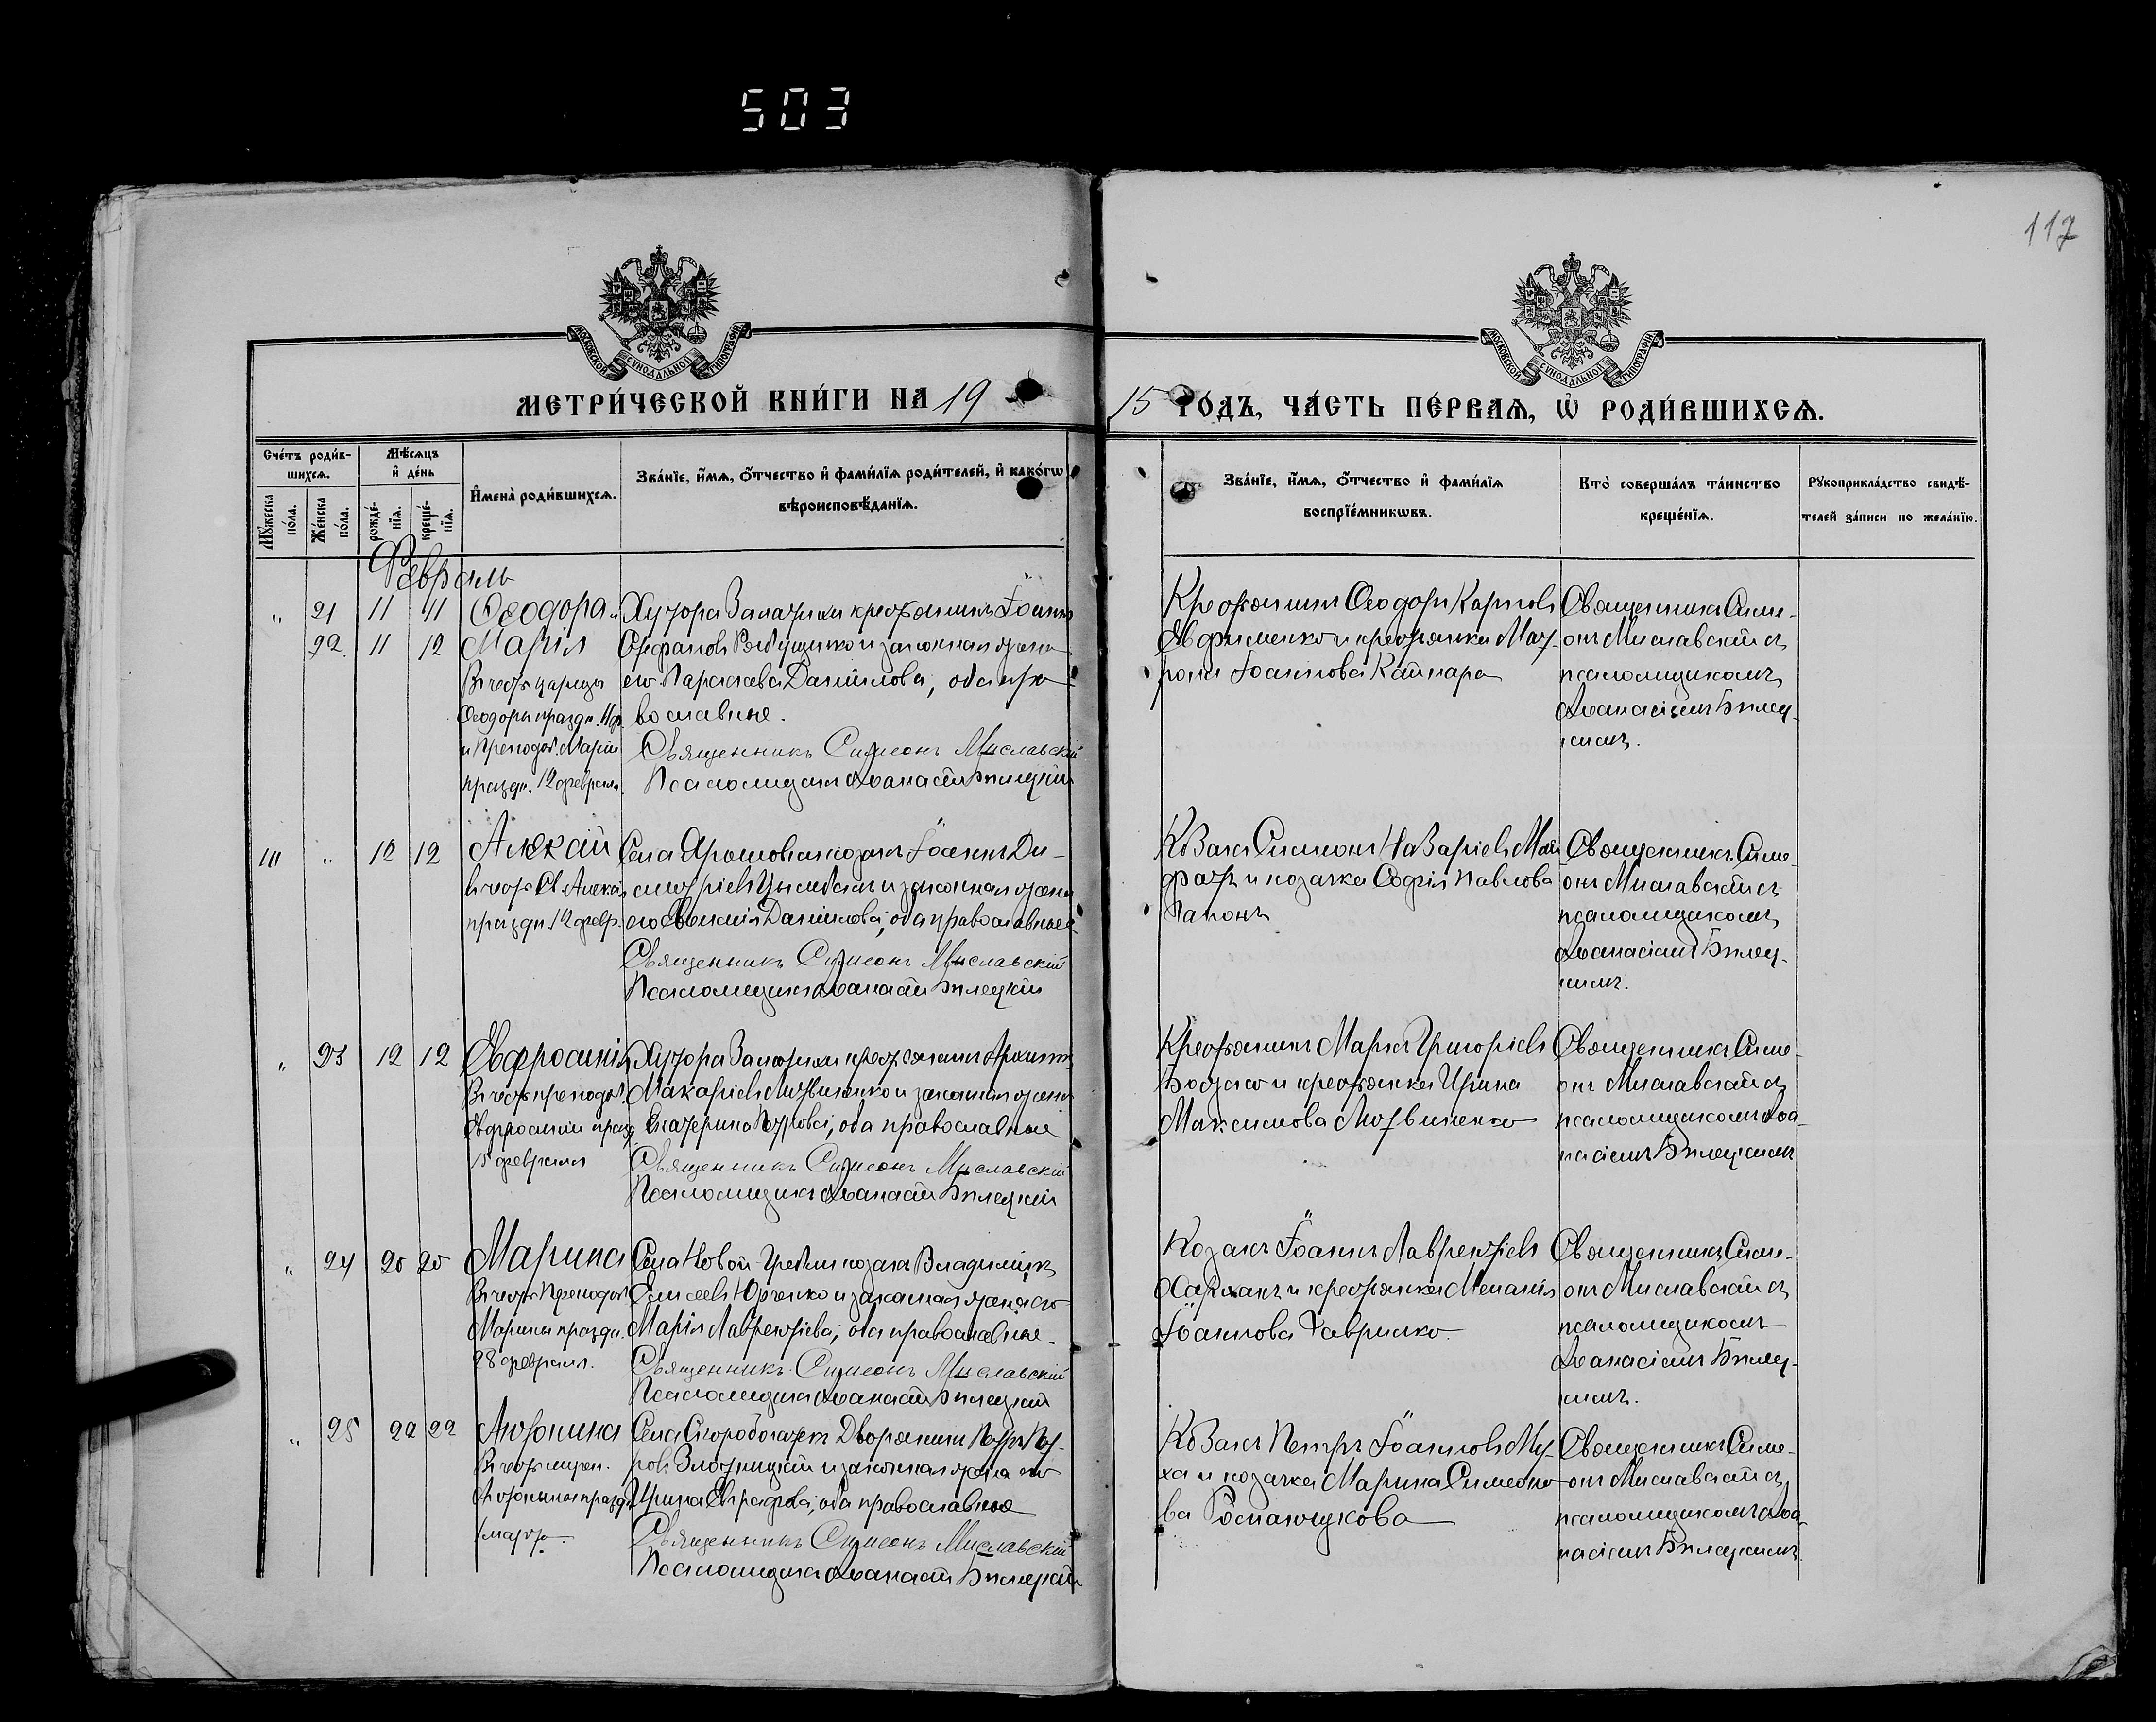 503
117
МОСКОВСКОЙ СѴНОДАЛЬНОЙ ТИПОГРАФІИ
МОСКОВСКОЙ СѴНОДАЛЬНОЙ ТИПОГРАФІИ
МЕТРИ́ЧЕСКОЙ КНИ́ГИ НА 19
15 ГО́ДЪ, ЧА́СТЬ ПЕ́РВАѦ, Ѡ҆ РОДИ́ВШИХСѦ.
Сче́тъ роди́в-
шихсѧ.
Мѣ́сѧцъ
и҆ де́нь
Мꙋ́жеска по́ла.
Же́нска по́ла.
рожде́-нїѧ.
креще́-нїѧ.
И҆мена̀ роди́вшихсѧ.
Зва́нїе, и҆́мѧ, ѻ҆́тчество и҆ фами́лїѧ роди́телей, и҆ како́гѡ
вѣроисповѣ́данїѧ.
Зва́нїе, и҆́мѧ, ѻ҆́тчество и҆ фами́лїѧ
воспрїе́мникѡвъ.
Кто̀ соверша́лъ та́инство
креще́нїѧ.
Рꙋкоприкла́дство свидѣ́-
телей за́писи по жела́нїю.
Февраль
" 21 11 11 Ѳеодора и
22 11 12 Марія
Въ честь царицы
Ѳеодоры праздн. 11 ф.
и Преподоб. Маріи
праздн. 12 февраля.
Хутора крестьянинъ Іоаннъ
Стефановъ и законная жена
его Параскева Даніилова, оба пра-
вославные.
Священникъ Симеонъ Миславскій
Псаломщикъ Аѳанасій Билецкій
Крестьянинъ Ѳеодоръ Карповъ
Евфименко и крестьянка Мат-
рона Іоаннова
Священникъ Симе-
онъ Миславскій съ
псаломщикомъ
Аѳанасіемъ Билец-
кимъ.
10 " 12 12 Алексій
Въ честь Св. Алексія
праздн. 12 февр.
Села Ярошовки козакъ Іоаннъ Ди-
митріевъ и законная жена
его Евгенія Даніилова, оба православные
Священникъ Симеонъ Миславскій
Псаломщикъ Аѳанасій Билецкій
Козакъ Симеонъ
и козачка Софія Павлова
Гапонъ
Священникъ Симе-
онъ Миславскій съ
псаломщикомъ
Аѳанасіемъ Билец-
кимъ.
" 23 12 12 Евфросинія
Въ честь преподоб.
Евфросиніи празд.
15 февраля
Хутора крестьянинъ
Макаріевъ Литвиненко и законная жена
Екатерина Петрова, оба православные
Священникъ Симеонъ Миславскій
Псаломщикъ Аѳанасій Билецкій
Крестьянинъ Маркъ Григоріевъ
и крестьянка Ирина
Максимова Литвиненко
Священникъ Симе-
онъ Миславскій съ
псаломщикомъ Аѳа-
насіемъ Билецкимъ
" 24 20 20 Марина
Въ честь Преподоб.
Марины праздн.
28 февраля.
Села Новой-Гребли козакъ Владиміръ
Елисеевъ Юрченко и законная жена его
Марія Лаврентіева, оба православные.
Священникъ Симеонъ Миславскій
Псаломщикъ Аѳанасій Билецкій
Козакъ Іоаннъ Лаврентіевъ
и крестьянка Меланія
Іоаннова Гаврилко.
Священникъ Симе-
онъ Миславскій съ
псаломщикомъ
Аѳанасіемъ Билец-
кимъ.
" 25 22 22 Антонина
Въ честь мучен.
Антонины праздн.
1 марта.
Села Скоробогатекъ Дворянинъ Петръ Пет-
ровъ и законная жена его
Ирина Евграфова, оба православные
Священникъ Симеонъ Миславскій
Псаломщикъ Аѳанасій Билецкій
Козакъ Петръ Іоанновъ Му-
ха и козачка Марина Симеоно-
ва
Священникъ Симе-
онъ Миславскій съ
псаломщикомъ Аѳа-
насіемъ Билецкимъ.